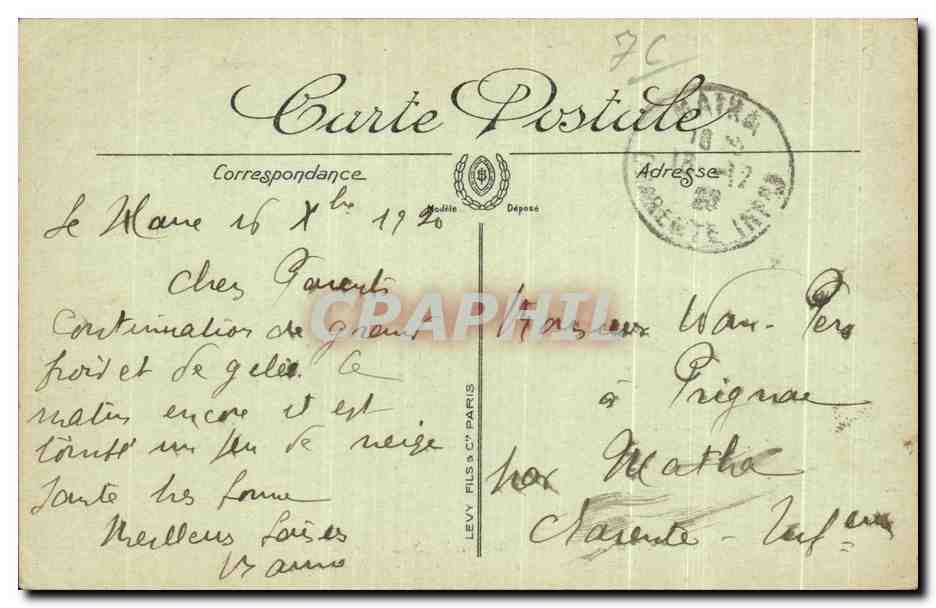 7C
Carte Postale
MATHA
18
18 -12
20
CHARENTE INFRE
Correspondance
Adresse
Modèle Déposé
Le 16 Xbre 1920
chers Parents
Continuation de grand
froid et de gelée. Ce
matin encore il est
tombé un peu de neige
Santé très bonne
Meilleurs baisers
CRAPHIL
LEVY FILS & Cie PARIS
Monsieur Père
à Prignac
par Matha
Charente-Inférieure